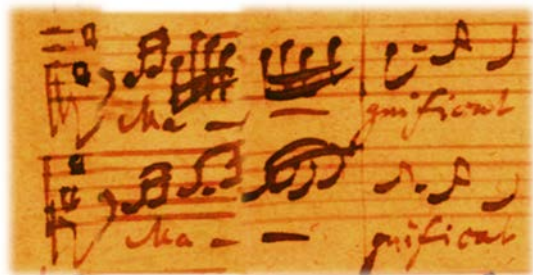 Ma - - gnificat
Ma - - gnificat